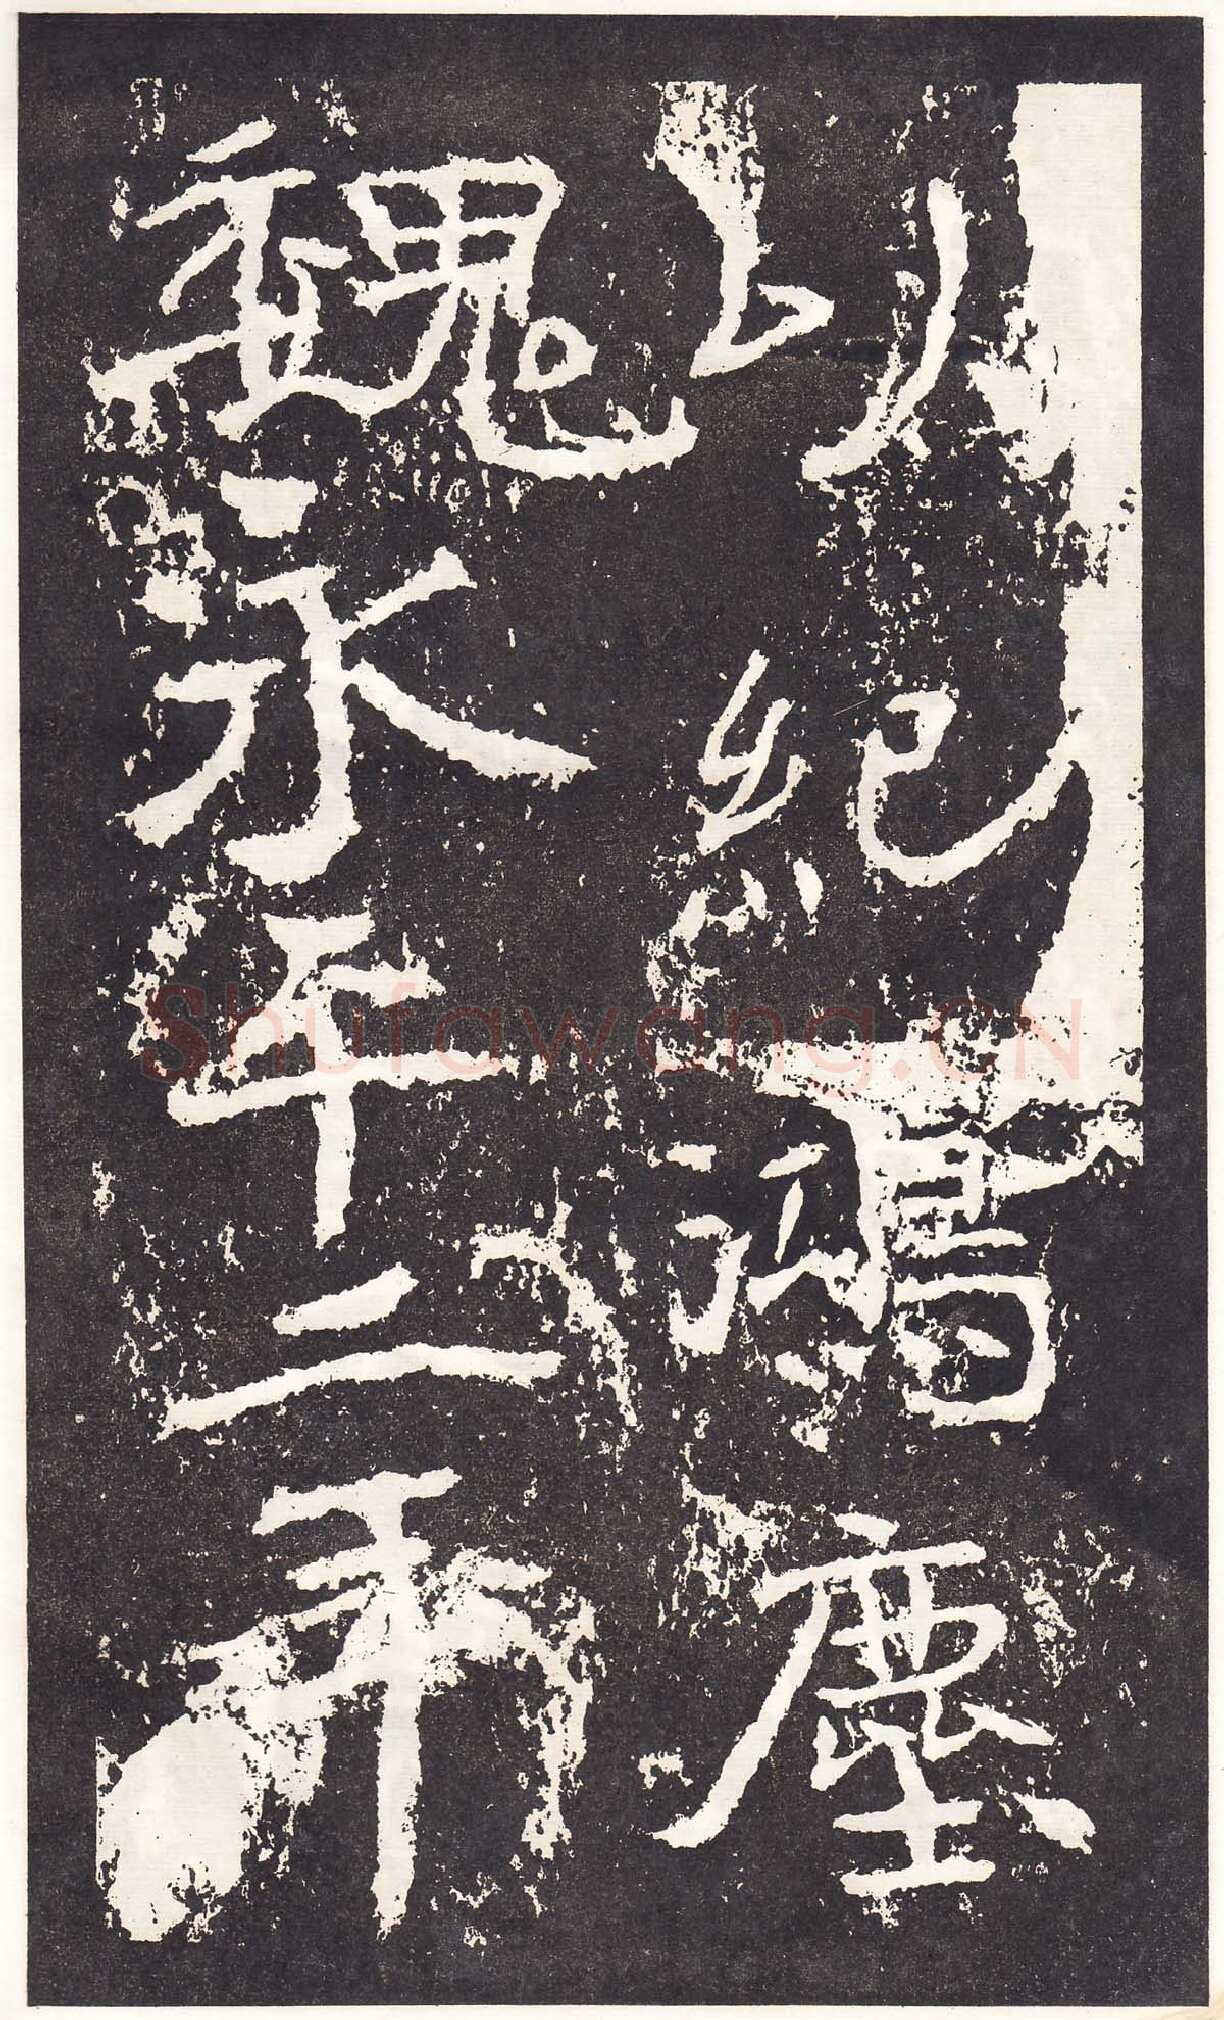 以紀鴻塵
魏永平二年
Shufawang.CN